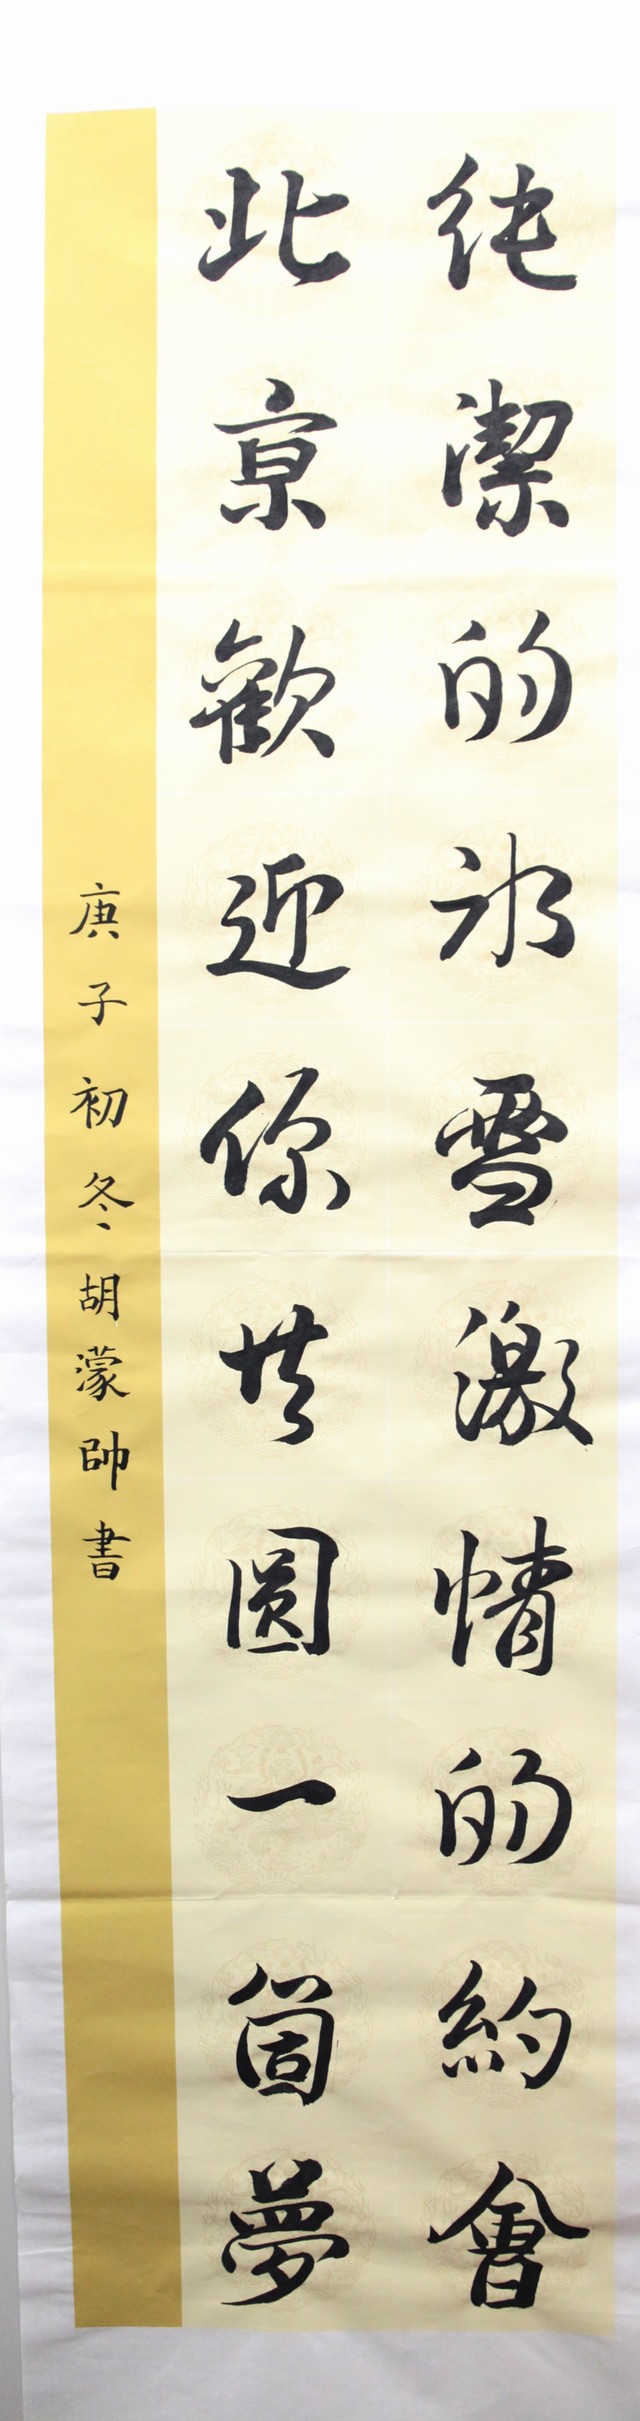 純潔的冰雪激情的約會
北京歡迎你共圆一箇夢
庚子初冬胡濛帥書